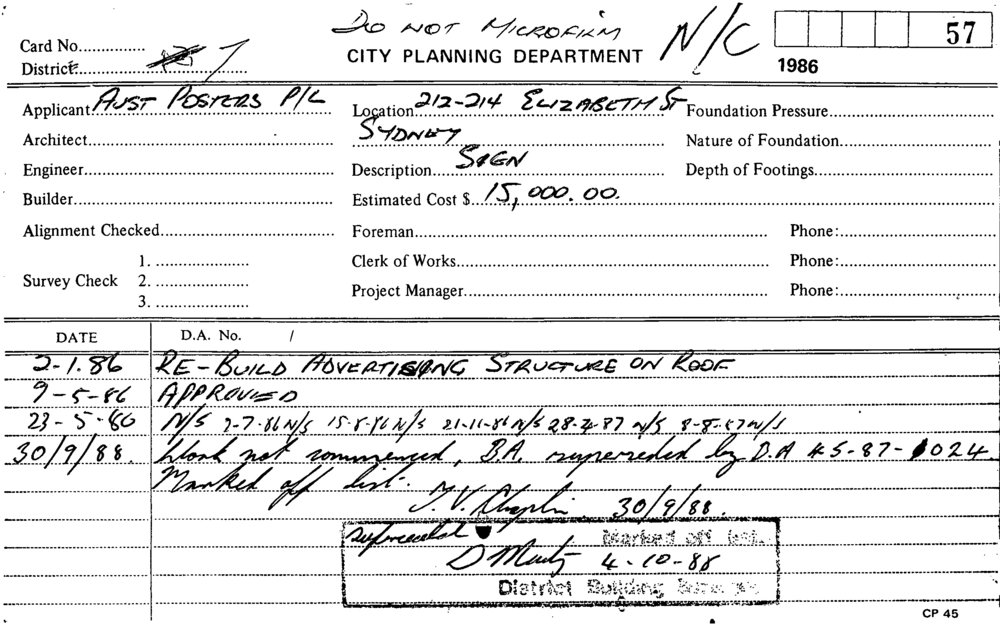 DO NOT MICROFILM
N/C
57
Card No.
CITY PLANNING DEPARTMENT
1986
District 7
Applicant AUST POSTERS P/L
Location 212-214 ELIZABETH ST
Foundation Pressure
Architect
SYDNEY
Nature of Foundation
Engineer
Description SIGN
Depth of Footings
Builder
Estimated Cost $ 15,000.00.
Alignment Checked
Foreman
Phone:
Survey Check
1.
2.
3.
Clerk of Works
Phone:
Project Manager
Phone:
DATE
D.A. No. /
2-1.86 RE-BUILD ADVERTISING STRUCTURE ON ROOF
9-5-86 APPROVED
23-5-86 N/S 2-7-86 N/S 15-8-86 N/S 21-11-86 N/S 28-2-87 N/S 8-8-87 N/S
30/9/88. Work not commenced, B.A. superseded by D.A 45-87-1024.
Marked off list.
T.V. Chaplin 30/9/88.
superseded Marked off
4-10-88
District Building
CP 45